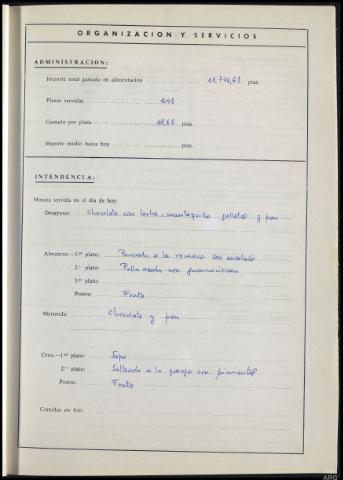 ORGANIZACION Y SERVICIOS
ADMINISTRACION:
Importe total gastado en alimentación 11.796,61 ptas.
Plazas servidas 241
Gastado por plaza 48,61 ptas.
Importe medio hasta hoy ptas.
INTENDENCIA:
Minuta servida en el día de hoy:
Desayuno: Chocolate con leche, mantequilla galletas y pan
Almuerzo—1.er plato: Pescado a la romana con ensalada
2.º plato: Pollo asado con
3.er plato:
Postre: Fruta
Merienda: Chocolate y pan
Cena—1.er plato: Sopa
2.º plato: a la con pimientos
Postre: Fruta
Comidas en frío:
ARG